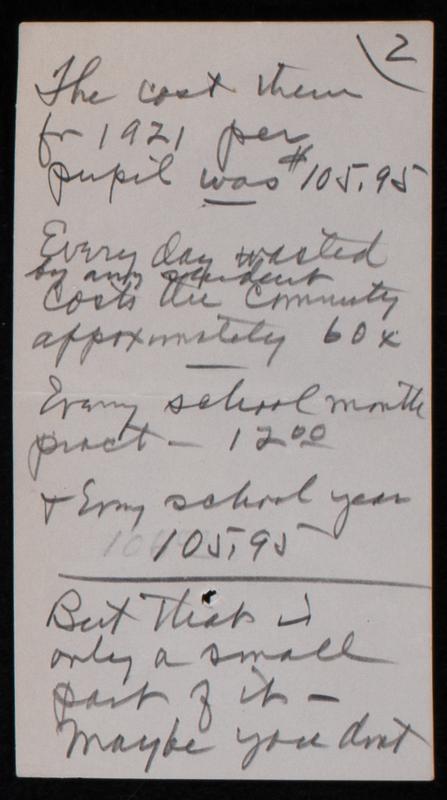 2
The cost then
for 1921 per
pupil was $105.95
Every day wasted
by any student
Costs the Community
appoximately 60¢
Every school month
pract - 12 00
+ Every school year
105.95
But that is
only a small
part of it -
Maybe you dont